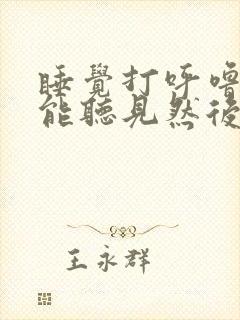 睡覺打呼嚕
能聽見然後
王永群